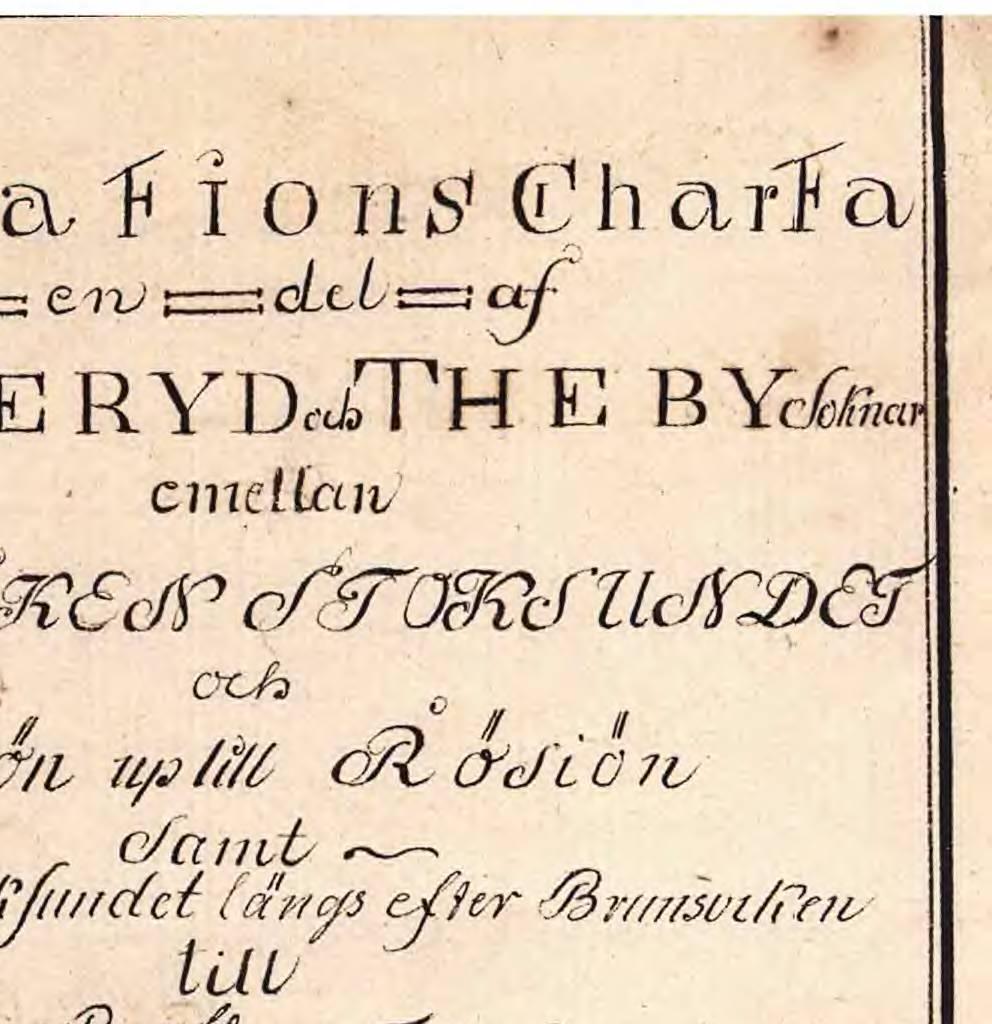 aTions CharTa
= en = del = af
ERYD och THEBY Soknar
emellan
KEN STOKSUNDET
och
ön up till Rösiön
Samt ~
ksundet längs efter Brunsviken
till